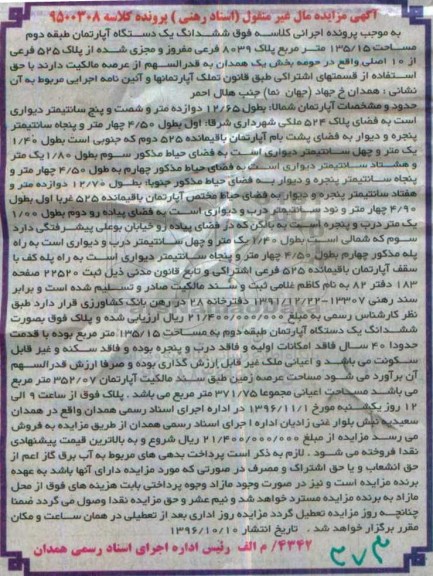 آگهی مزایده مال غیر منقول (اسناد رهنی) پرونده کلاسه ۹۵۰۰۳۰۸
به موجب پرونده اجرائی کلاسه فوق ششدانگ یک دستگاه آپارتمان طبقه دوم
مساحت ۱۳۵/۱۵ متر مربع پلاک ۸۰۳۹ فرعی مفروز و مجزی شده از پلاک ۵۲۵ فرعی
از ۱۰ اصلی واقع در حومه بخش یک همدان به قدرالسهم از عرصه مالکیت دارند با حق
استفاده از قسمتهای اشتراکی طبق قانون تملک آپارتمانها و آئین نامه اجرایی مربوط به آن
نشانی: همدان خ جهاد (جهان نما) جنب هلال احمر
حدود و مشخصات آپارتمان شمالا: بطول ۱۲/۶۵ دوازده متر و شصت و پنج سانتیمتر دیواری
است به فضای پلاک ۵۲۴ ملکی شهرداری شرقا: اول بطول ۴/۵۰ چهار متر و پنجاه سانتیمتر
پنجره و دیوار به فضای پشت بام آپارتمان باقیمانده ۵۲۵ دوم که جنوبی است بطول ۱/۴۰
یک متر و چهل سانتیمتر دیواری است به فضای حیاط مذکور سوم بطول ۱/۸۰ یک متر
و هشتاد سانتیمتر دیواری است به فضای حیاط مذکور چهارم به طول ۴/۵۰ چهار متر و
پنجاه سانتیمتر پنجره و دیوار به فضای حیاط مذکور جنوبا: بطول ۱۲/۷۰ دوازده متر و
هفتاد سانتیمتر پنجره و دیوار به فضای حیاط مختص آپارتمان باقیمانده ۵۲۵ غربا اول بطول
۴/۹۰ چهار متر و نود سانتیمتر درب و دیواری است به فضای پیاده رو دوم بطول ۱/۰۰
یک متر درب و پنجره است به بالکن که در فضای پیاده رو خیابان بوعلی پیشرفتگی دارد
سوم که شمالی است بطول ۱/۴۰ یک متر و چهل سانتیمتر درب و دیواری است به راه
پله مذکور چهارم بطول ۴/۵۰ چهار متر و پنجاه سانتیمتر دیواری است به راه پله کف با
سقف آپارتمان باقیمانده ۵۲۵ فرعی اشتراکی و تابع قانون مدنی ذیل ثبت ۲۲۵۲۰ صفحه
۱۸۳ دفتر ۸۲ به نام کاظم غلامی ثبت و سند مالکیت صادر و تسلیم شده است و برابر
سند رهنی ۱۳۳۰۷-۱۳۹۱/ دفترخانه ۲۸ در رهن بانک کشاورزی قرار دارد طبق
نظر کارشناس رسمی به مبلغ ۲۱/۴۰۰/۰۰۰/۰۰۰ ریال ارزیابی شده و پلاک فوق بصورت
ششدانگ یک دستگاه آپارتمان طبقه دوم به مساحت ۱۳۵/۱۵ متر مربع بوده با قدمت
حدودا ۴۰ سال فاقد امکانات اولیه و فاقد درب و پنجره بوده و فاقد سکنه و غیر قابل
سکونت می باشد و اعیانی ملک غیر قابل ارزش گذاری بوده و صرفا ارزش قدرالسهم
آن برآورد می شود مساحت عرصه زمین طبق سند مالکیت آپارتمان ۳۵۲/۰۷ متر مربع
می باشد مساحت اعیانی مجموعا ۳۷۱/۷۵ متر مربع می باشد. پلاک فوق از ساعت ۹ الی
۱۲ روز یکشنبه مورخ ۱۳۹۶/۱۱/۱ در اداره اجرای اسناد رسمی همدان واقع در همدان
سعیدیه نبش بلوار غنی زادیان اداره اجرای اسناد رسمی همدان از طریق مزایده به فروش
می رسد مزایده از مبلغ ۲۱/۴۰۰/۰۰۰/۰۰۰ ریال شروع و به بالاترین قیمت پیشنهادی
نقدا فروخته می شود. لازم به ذکر است پرداخت بدهی های مربوط به آب برق گاز اعم از
حق انشعاب و یا حق اشتراک و مصرف در صورتی که مورد مزایده دارای آنها باشد به عهده
برنده مزایده است و نیز در صورت وجود مازاد وجوه پرداختی بابت هزینه های فوق از محل
مازاد به برنده مزایده مسترد خواهد شد و نیم عشر و حق مزایده نقدا وصول می گردد ضمنا
چنانچه روز مزایده تعطیل گردد مزایده روز اداری بعد از تعطیلی در همان ساعت و مکان
مقرر برگزار خواهد شد. تاریخ انتشار ۱۳۹۶/۱۰/۱۰
۴۳۴۲/ م الف رئیس اداره اجرای اسناد رسمی همدان